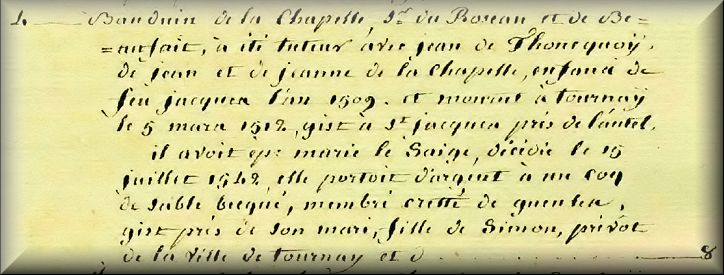 1 Bauduin de la Chapelle, Sr. du Roseau et de Be=
=aufait, à été tuteur avec jean de Thoncquoij,
de jean et de jeanne de la Chapelle, enfans de
feu jacques l'an 1509. et mourut à tournaij
le 5 mars 1512, gist à St. jacques près de l'autel,
il avoit ép: marie le Saige, décédée le 15
juillet 1542, elle portoit d'argent à un coq
de sable becqué, membré cretté de gueules,
gist près de son mari, fille de Simon, prévot
de la ville de tournay et d 8